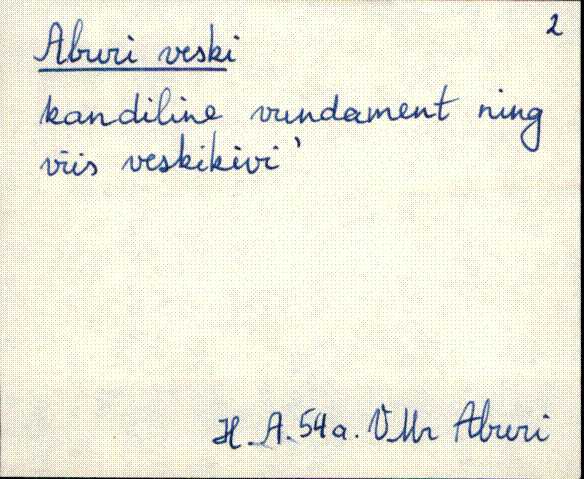 2
Aburi veski
kandiline vundament ning
viis veskikivi'
H. A. 54a. VMr Aburi